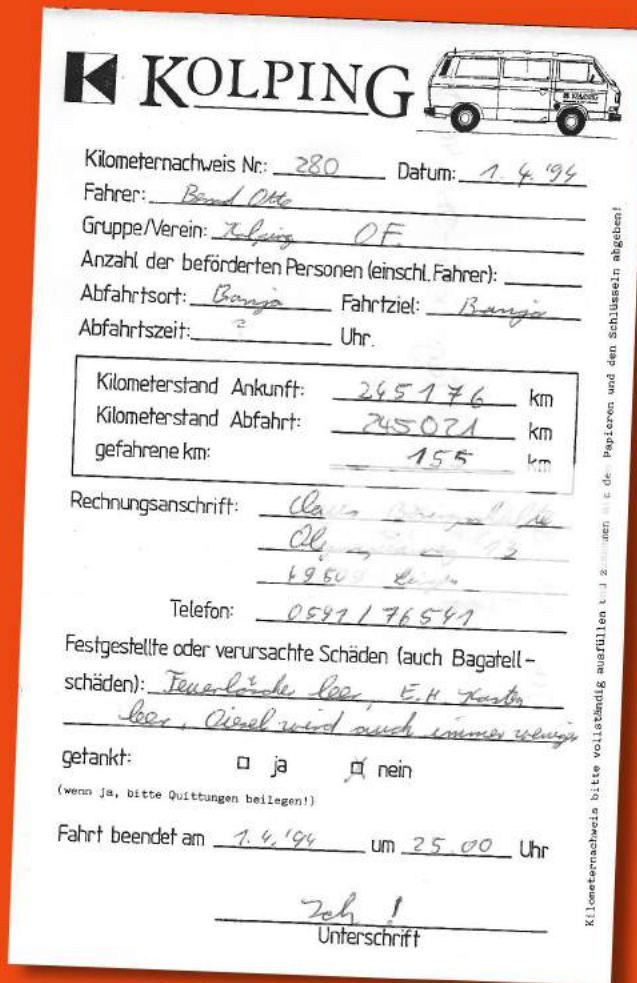 KOLPING
Kilometernachweis Nr.: 280 Datum: 1. 4. '94
Fahrer: Bernd Otte
Gruppe/Verein: Kolping OF.
Anzahl der beförderten Personen (einschl. Fahrer):
Abfahrtsort: Banja Fahrtziel: Banja
Abfahrtszeit: ? Uhr.
Kilometerstand Ankunft: 245176 km
Kilometerstand Abfahrt: 245021 km
gefahrene km: 155 km
Rechnungsanschrift: Claus
13
49509
Telefon: 0591/76541
Festgestellte oder verursachte Schäden (auch Bagatell-
schäden): Feuerlöscher leer, E.H. Kasten
leer, Diesel wird auch immer weniger
getankt: ja nein
(wenn ja, bitte Quittungen beilegen!)
Fahrt beendet am 1.4.'94 um 25.00 Uhr
Ich !
Unterschrift
Kilometernachweis bitte vollständig ausfüllen und zusammen mit den Papieren und den Schlüsseln abgeben!